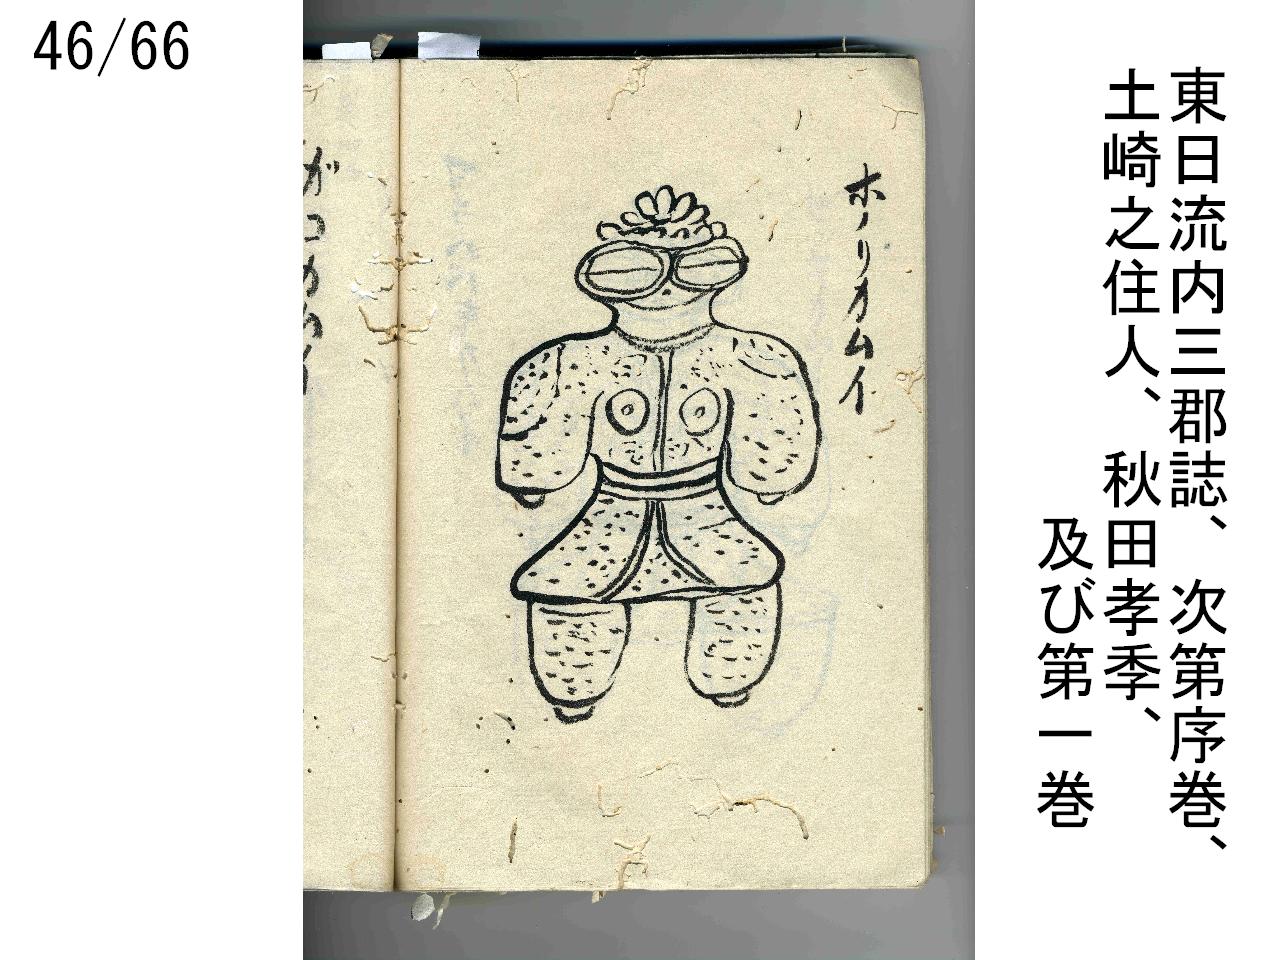 46/66
東日流内三郡誌、次第序巻、
土崎之住人、秋田孝季、
及び第一巻
ホノリカムイ